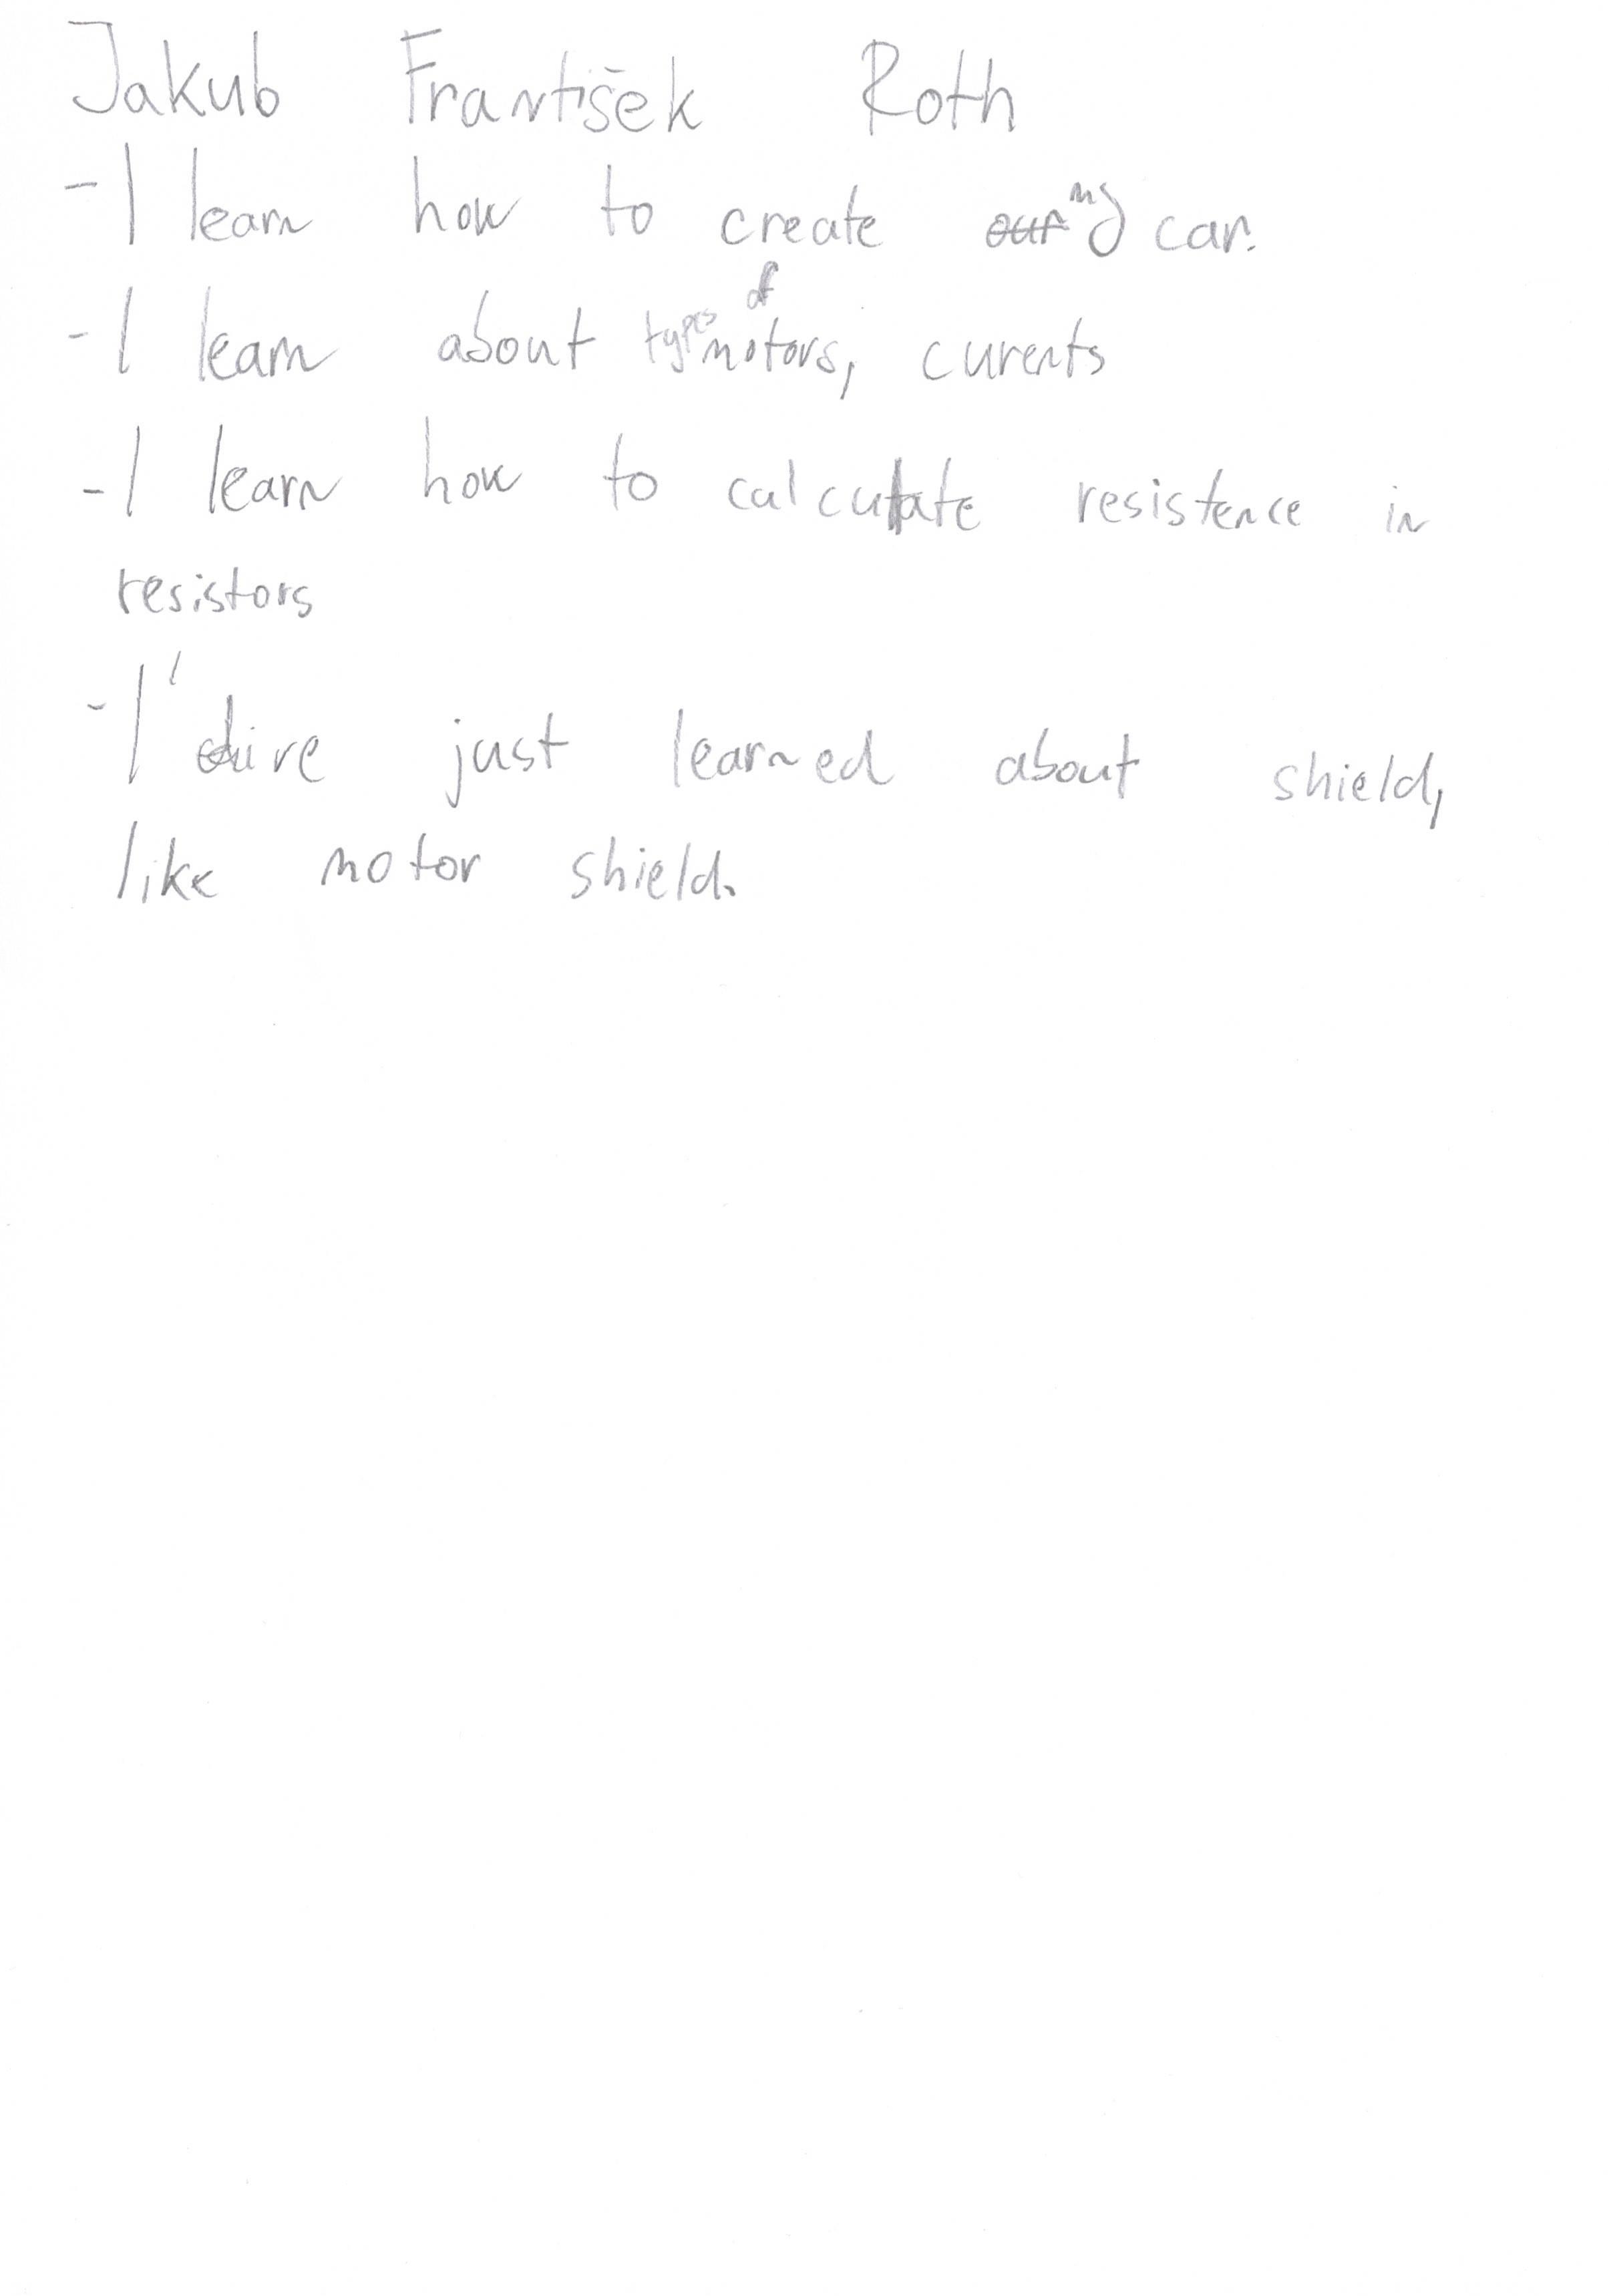 Jakub František Roth
- I learn how to create my car.
- I learn about types of motors, curents
- I learn how to calculate resistence in
resistors
- I' just learned about shield,
like motor shield.